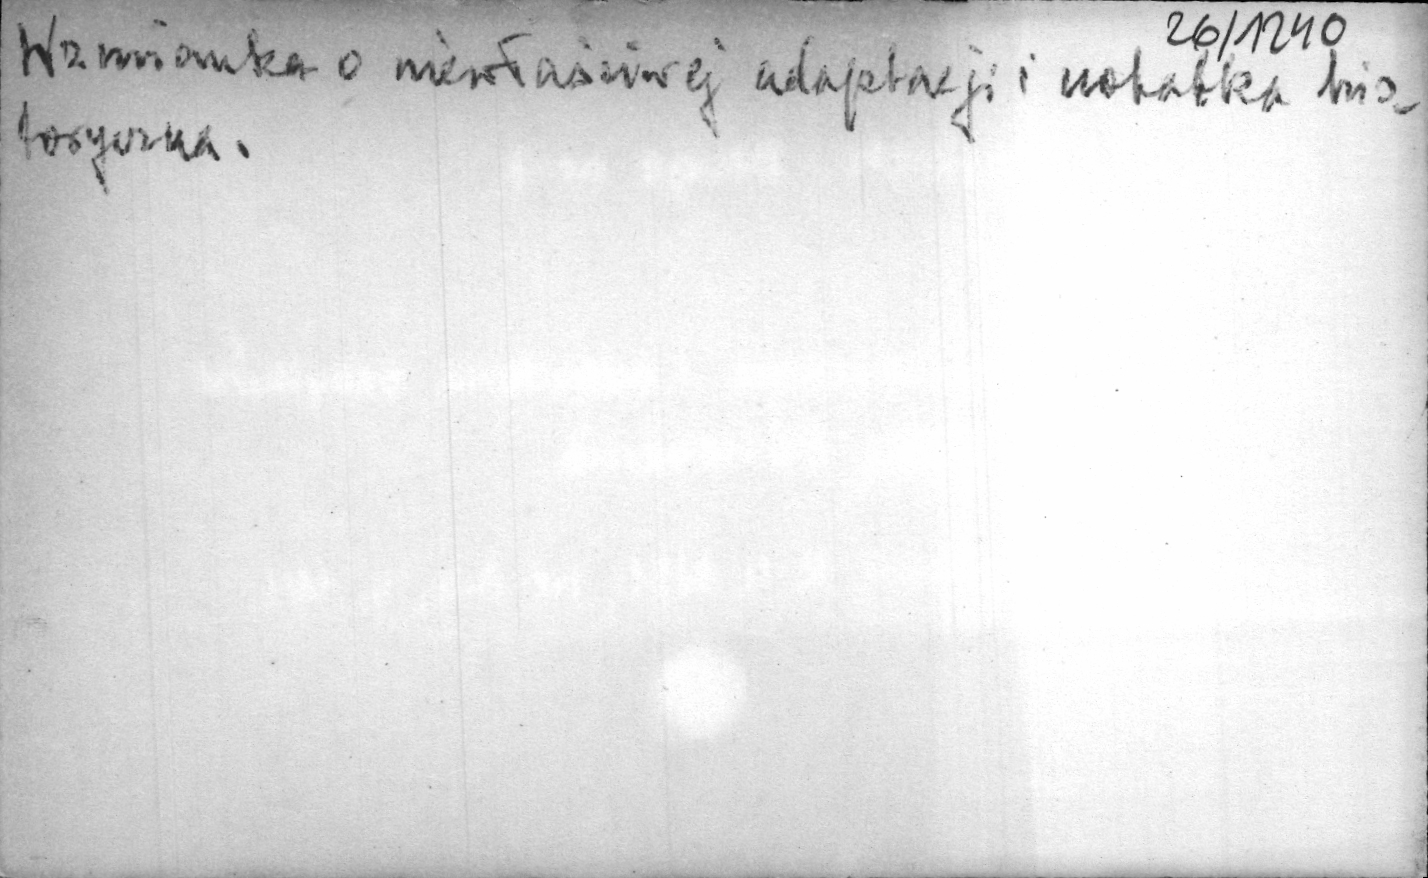 26/1240
Wzmianka o niewłaściwej adaptacji i notatka his-
toryczna.